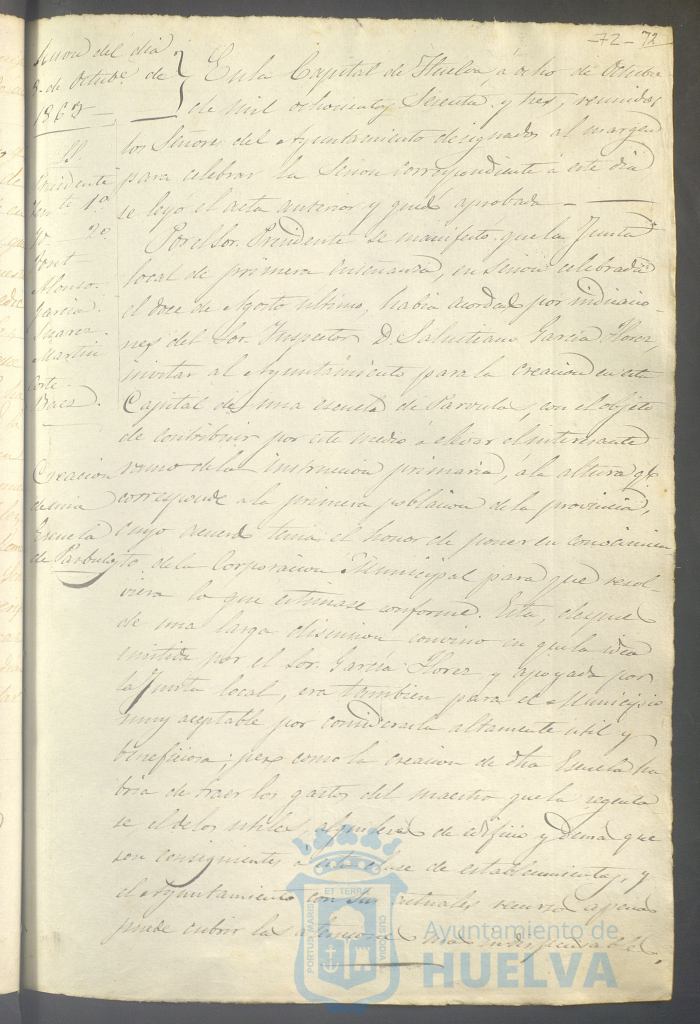 -72- 72
Sesion del dia
8. de Octubre de
1863
SS.
Presidente
Tente 1º
Yd. 2º
Alonso.
Garcia.
Suarez.
Martin
Corte.
Baez.
Creacion
de una
Escuela
de Parbulos
En la Capital de Huelva, á ocho de Octubre
de mil ochocientos sesenta y tres, reunidos
los Señores del Ayuntamiento designados al margen
para celebrar la Sesion correspondiente á este dia
se leyó el acta anterior y quedó aprobada
Por el Sor. Presidente se manifestó que la Junta
local de primera enseñanza, en sesion celebrada
el doce de Agosto ultimo, habia acordado por indicacio-
nes del Sor. Inspector D. Salustiano Garcia Florez,
invitar al Ayuntamiento para la creacion en esta
Capital de una escuela de Parvulos, con el objeto
de contribuir por este medio á elevar el interesante
ramo de la instruccion primaria, á la altura qe.
corresponde á la primera poblacion de la provincia,
cuyo acuerdo tenia el honor de poner en conocimien
to de la Corporacion Municipal para que resol-
viera lo que estimase conforme. Esta, despues
de una larga discusion convino en que la idea
emitida por el Sor. Garcia Florez y apoyada por
la Junta local, era tambien para el Municipio
muy aceptable por considerarla altamente util y
beneficiosa; pero como la creacion de dha Escuela ha
bria de traer los gastos del maestro que la regenta
se el de los utiles, de edificio y demas que
son consiguientes á esta clase de establecimientos, y
el Ayuntamiento con sus actuales recursos apenas
puede cubrir las atenciones mas indispensables,
PORTUS MARIS
ET TERRÆ
CUSTODIA
Ayuntamiento de
HUELVA